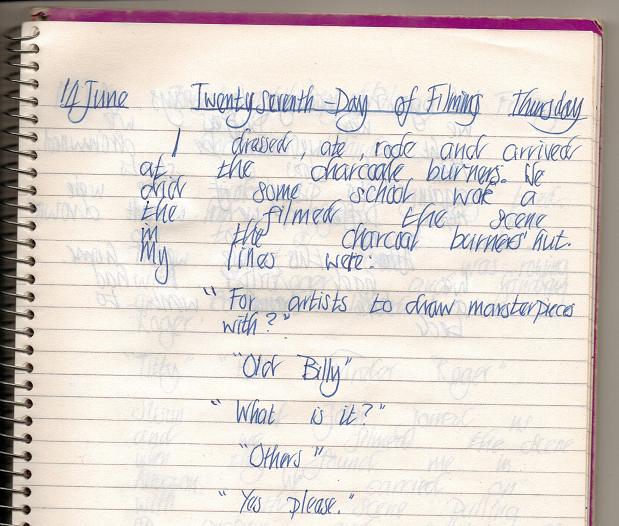 14 June Twenty seventh - Day of Filming Thursday
I dressed, ate, rode and arrived
at the charcoale burners. We
did some school work a
the filmed the scene
in the charcoal burners' hut.
My lines were:
"For artists to draw mansterpieces
with?"
"Old Billy"
"What is it?"
"Others"
"Yes please."